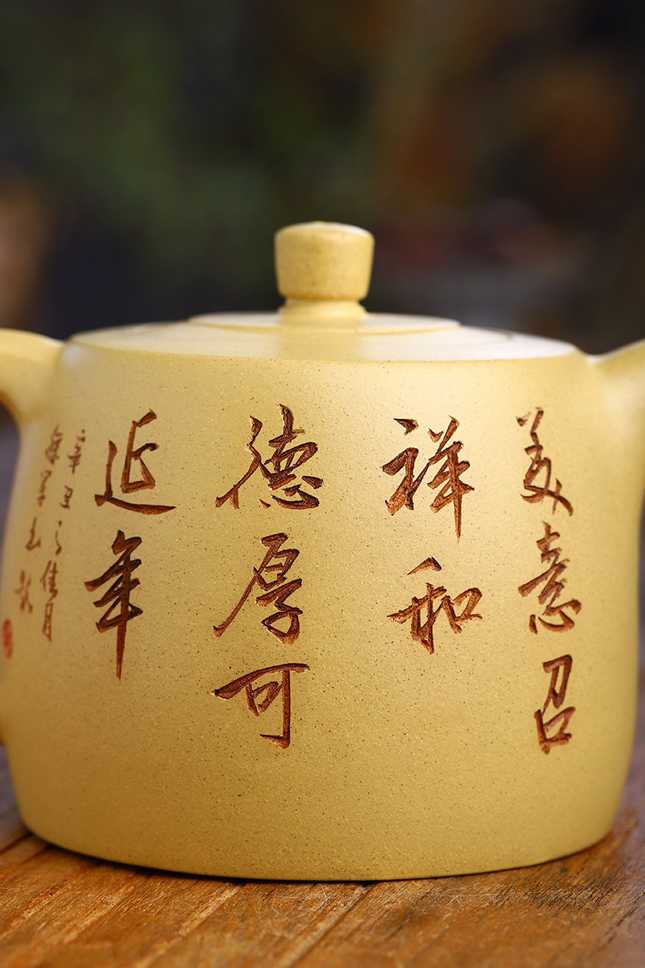 美意召
祥和
德厚可
延年
辛丑之佳月